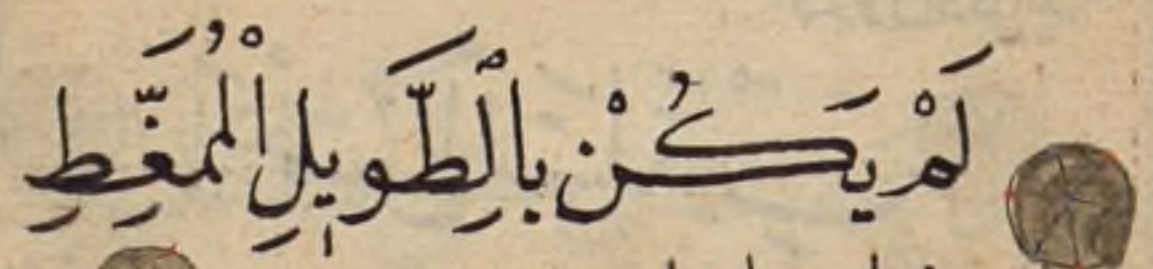 لَمْ يَكُنْ بِالطَّوِيلِ الْمُمَغَّطِ